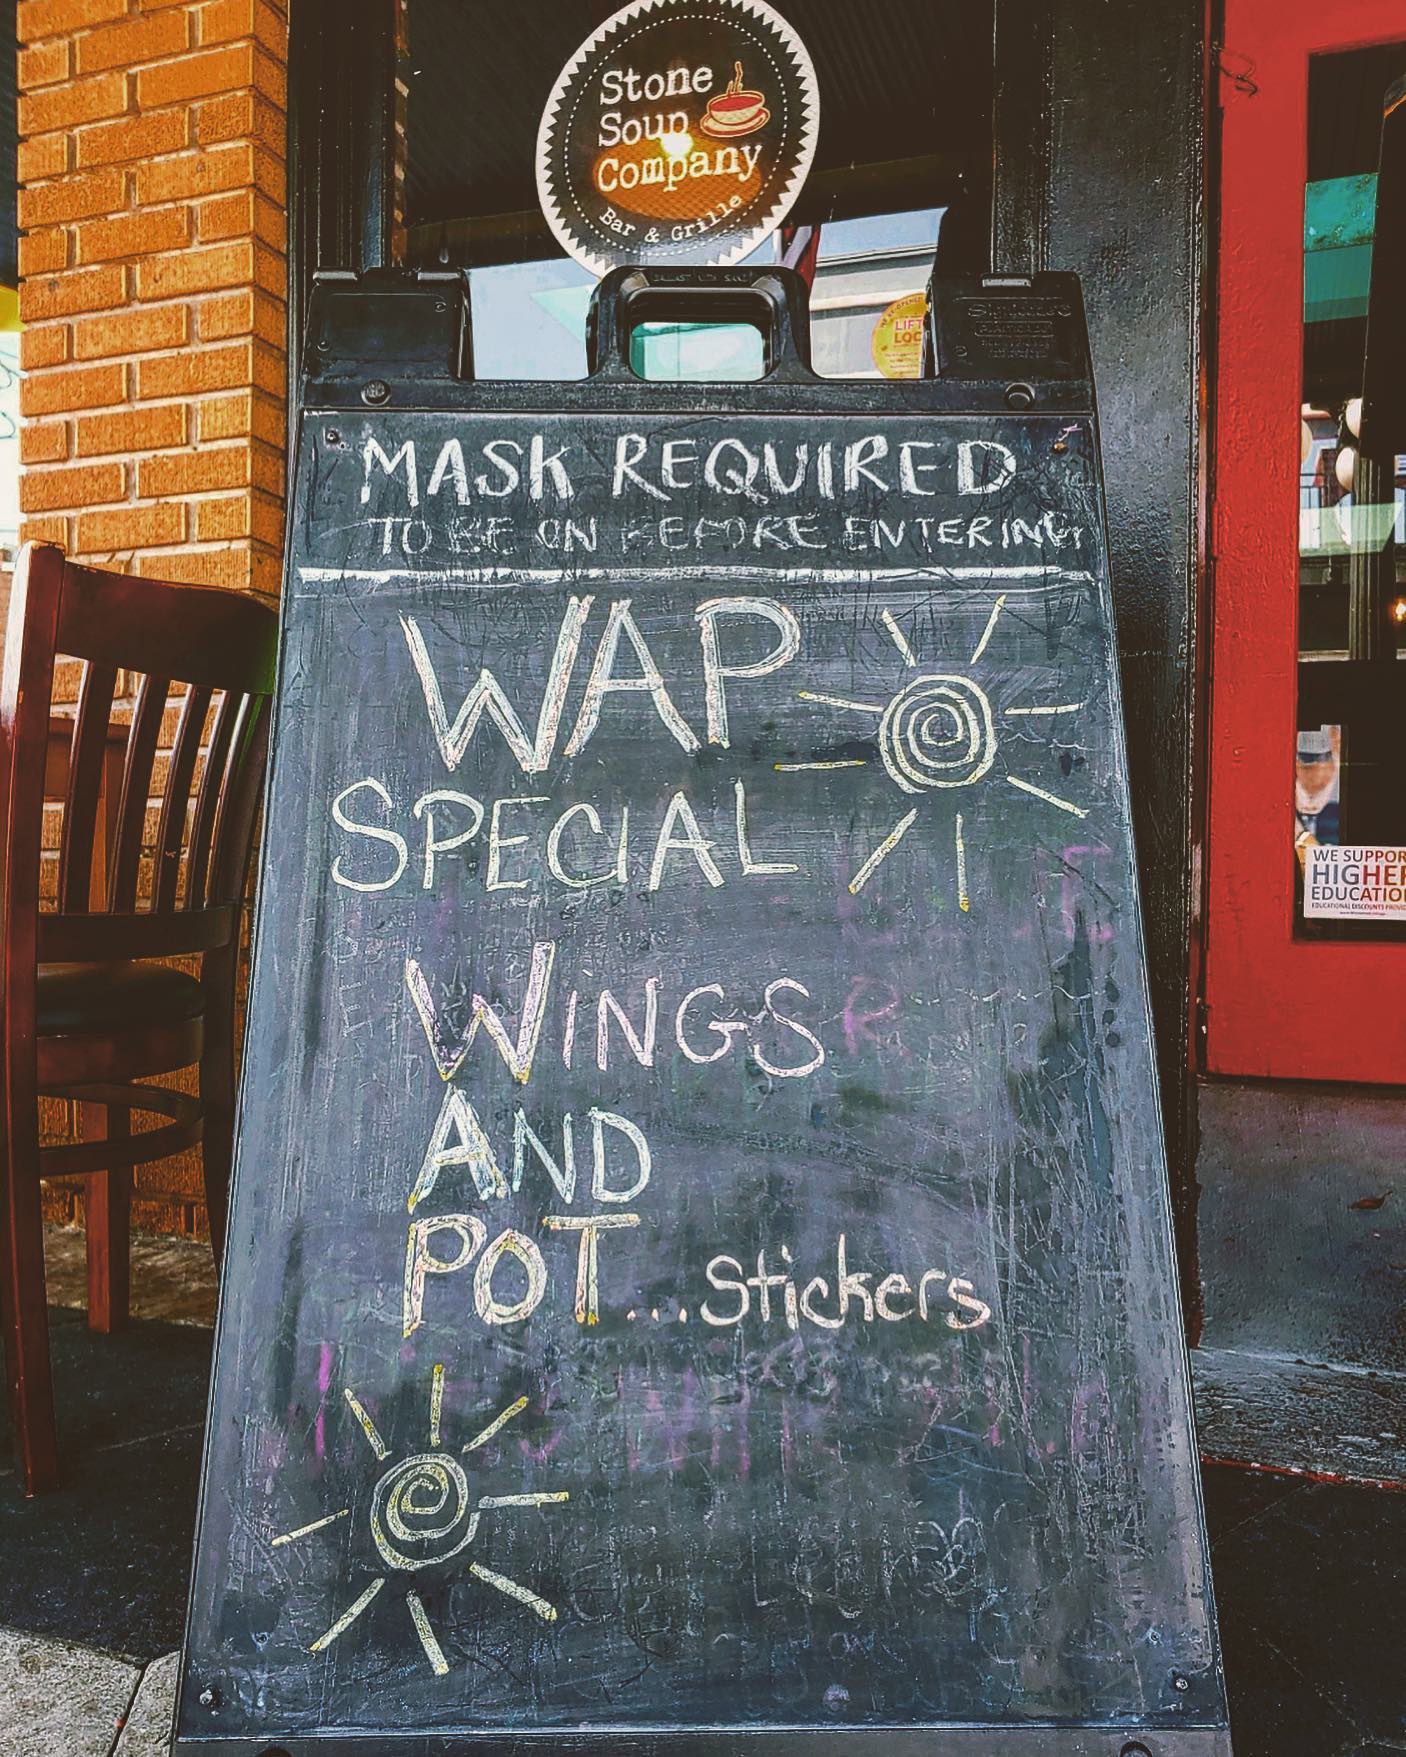 Stone
Soup
Company
Bar & Grille
LIFT
LOC
MASK REQUIRED
TO BE ON BEFORE ENTERING
WAP
SPECIAL
WiNGS
AND
POT... Stickers
WE SUPPOR
HIGHER
EDUCATIO
EDUCATIONAL DISCOUNTS PROVID